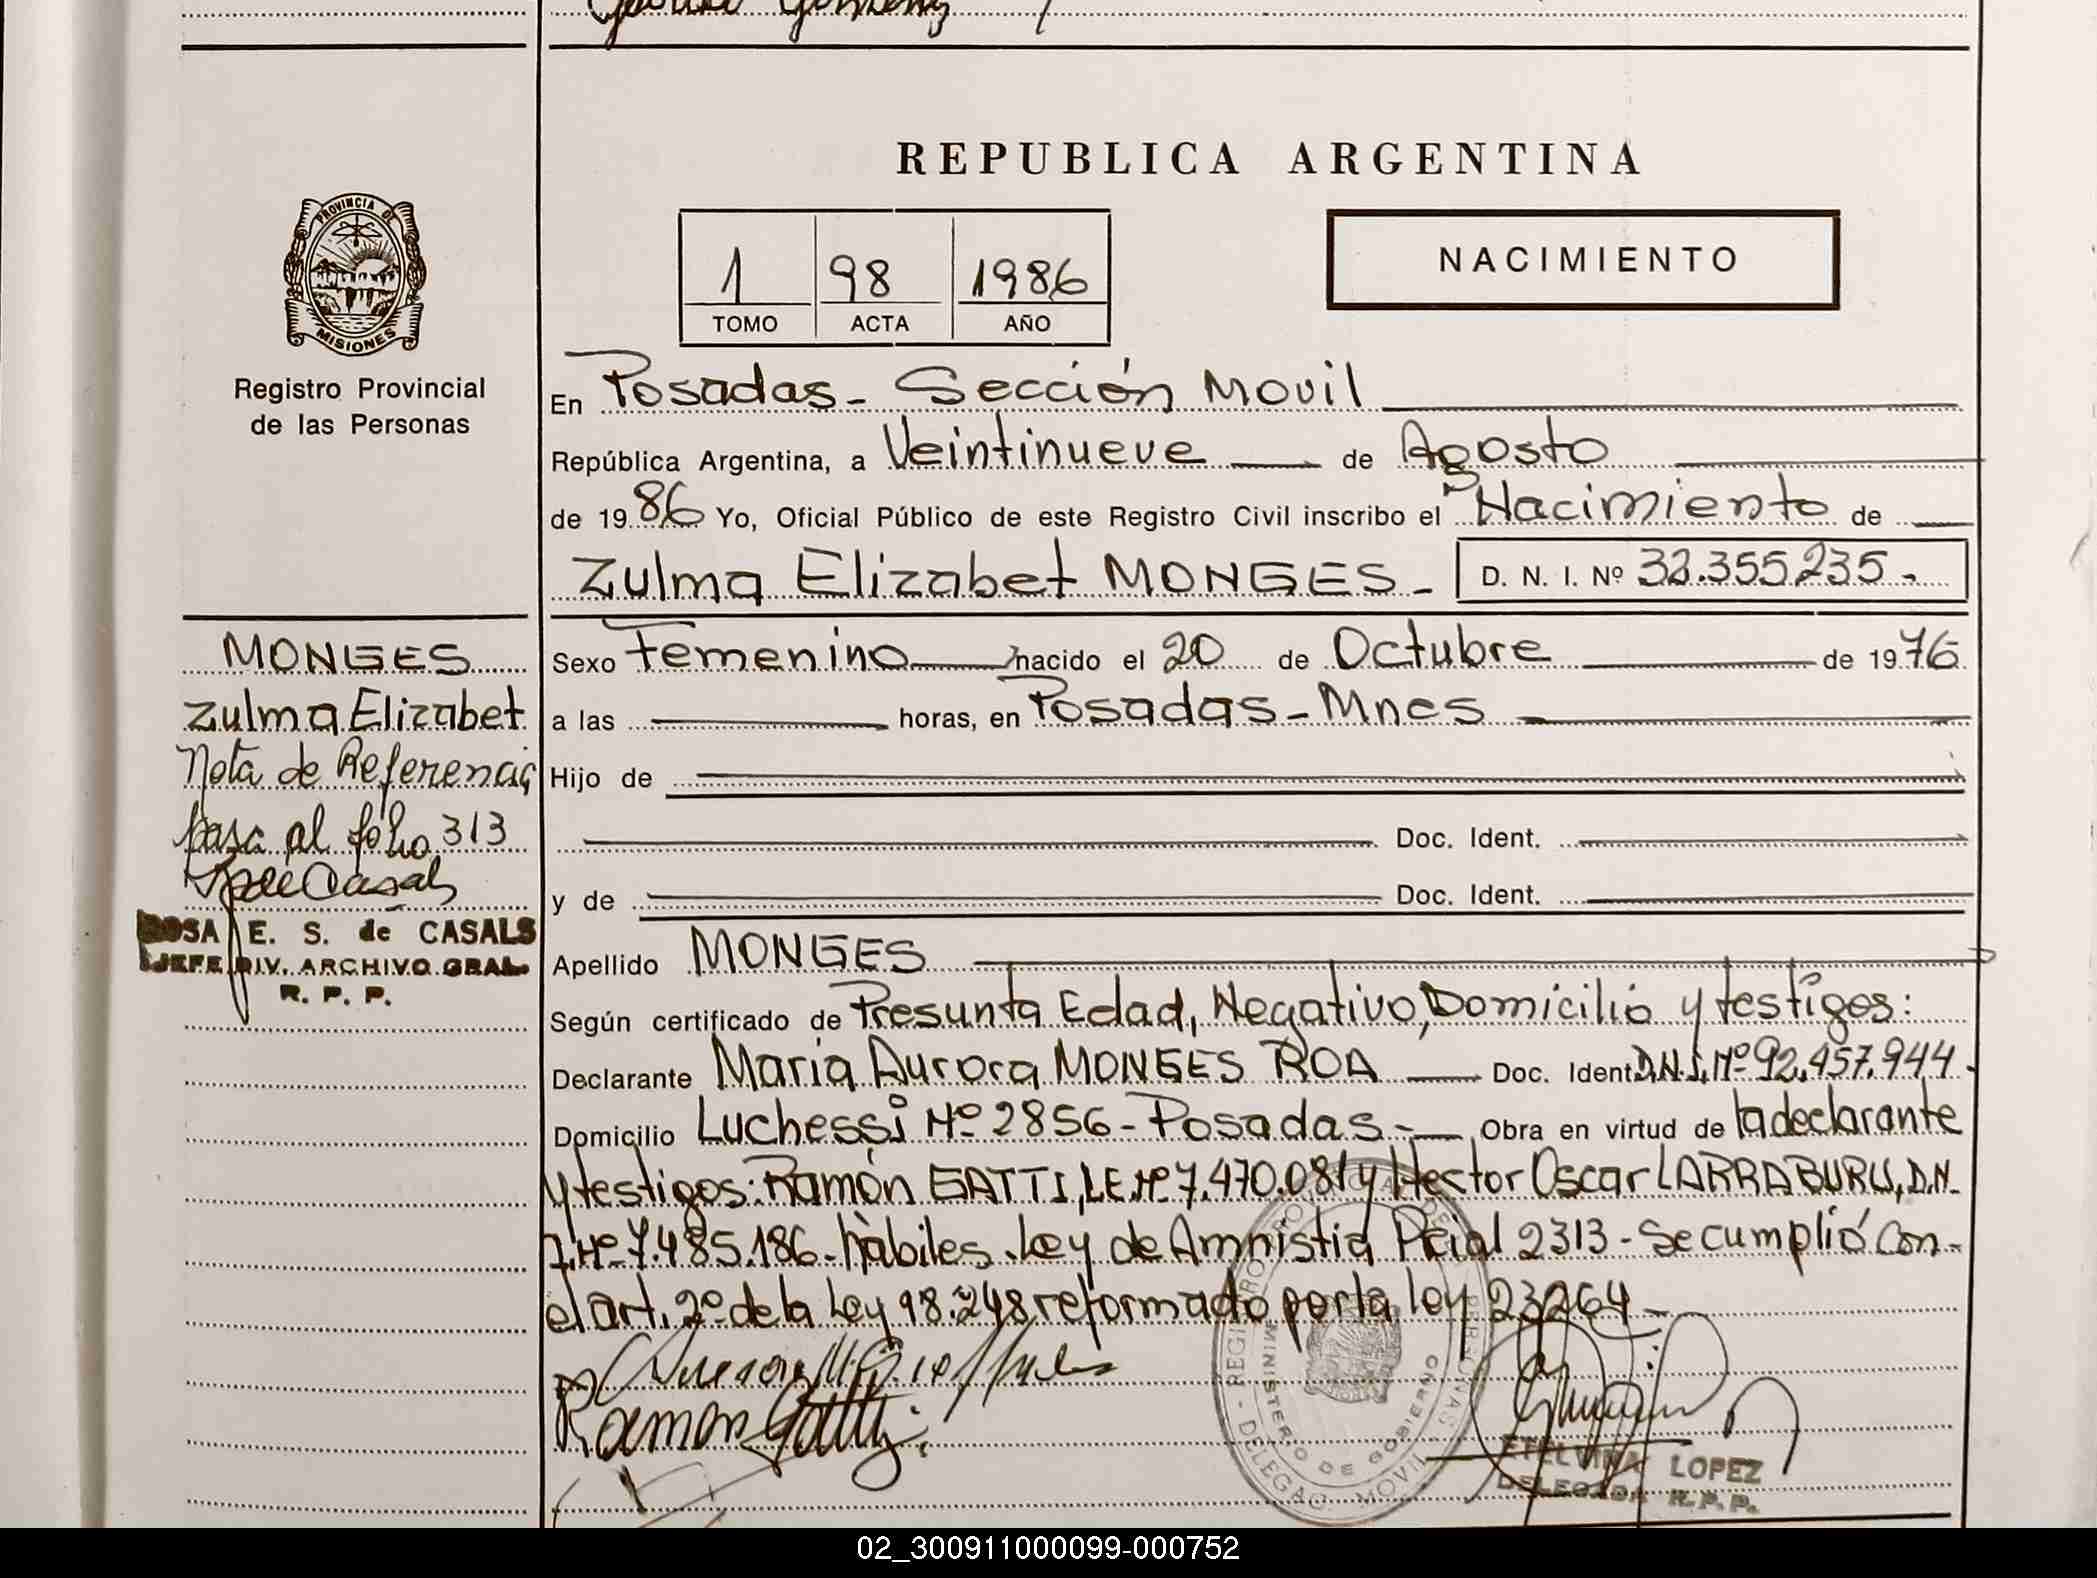 REPUBLICA ARGENTINA
PROVINCIA DE
MISIONES
Registro Provincial
de las Personas
1 98 1986
TOMO ACTA AÑO
NACIMIENTO
En Posadas - Sección Movil
República Argentina, a Veintinueve de Agosto
de 1986 Yo, Oficial Público de este Registro Civil inscribo el Nacimiento de
Zulma Elizabet MONGES - D. N. I. Nº 32.355.235.
MONGES
Zulma Elizabet
Nota de Referencia
pasa al folio 313
ROSA E. S. de CASALS
JEFE DIV. ARCHIVO GRAL.
R. P. P.
Sexo Femenino nacido el 20 de Octubre de 1976
a las horas, en Posadas - Mnes
Hijo de
Doc. Ident.
y de Doc. Ident.
Apellido MONGES
Según certificado de Presunta Edad, Negativo, Domicilio y testigos:
Declarante Maria Aurora MONGES ROA Doc. Ident. D.N.I. Nº 92.457.944.
Domicilio Luchessi Nº 2856 - Posadas - Obra en virtud de la declarante
y testigos: Ramón GATTI, L.E. Nº 7.470.081 y Hector Oscar LARRABURU, D.N.
I. Nº 7.485.186 - hàbiles. Ley de Amnistia Pcial 2313 - Se cumplió con
el art. 2º de la Ley 18.248 reformado por la ley 23264 -
Ramon Gatti
REGISTRO PROVINCIAL DE LAS PERSONAS - DELEGAC. MOVIL
MINISTERIO DE GOBIERNO
ETELVINA LOPEZ
DELEGADA R. P. P.
02_300911000099-000752